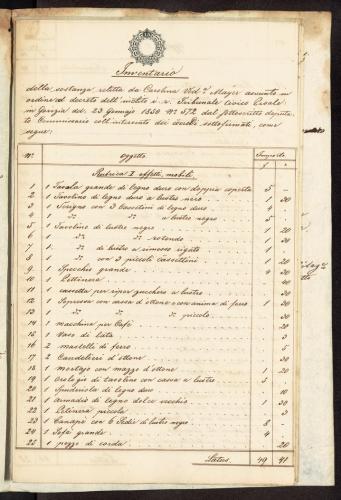 Inventario
della sostanza relitta da Carolina Ved.ª Mayer assunto in
ordine al decreto dell' inclito i. r. Tribunale Civico Prov.le
in Gorizia del. 23 Gennajo 1850 Nº 572 dal sottoscritto deputa
to Commissario coll' intervento dei sottofirmati, come
segue:
Nº. Oggetto Importo
f x
Rubrica I effetti, mobili
1 1 Tavola grande di legno duro con doppia coperta 5 -
2 1 Tavolino di legno duro a lustro nero 1 30
3 1 Scrigno con 3 Cassettini di legno duro 4 -
4 1 d.º d.º a lustro negro 5 -
5 1 Tavolino di lustro negro 1 20
6 1 d.º rotondo 1 30
7 1 d.º di lustro a rimesso rigato 1 -
8 1 con 3 piccoli Cassettini 1 20
9 1 Specchio grande 4 30
10 1 Lettiera - 20
11 1 cassetta per riper zucchero a lustro - 30
12 1 Sopressa con cassa d'ottone e con anima di ferro 1 30
13 1 d.º d.º d.º piccolo - 30
14 1 macchina per Caffè - 20
15 1 Vaso di latta - 3
16 2 mastelle di ferro - 5
17 2 Candelieri d'ottone - 30
18 1 mortajo con mazzo d'ottone 1 20
19 1 orologio di tavolino con cassa a lustro 5 -
20 1 Spudarola di legno duro - 10
21 1 armadio di legno dolce vecchio 1 30
22 1 Lettiera piccola - 3
23 1 Canapè con 6 Sedie di lustro negro 8 -
24 1 Sofà grande 4 -
25 1 pezzo di corda - 20
Latus. 49 41